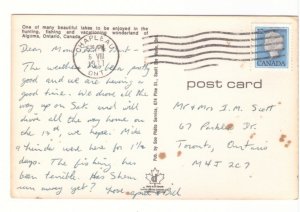 One of many beautiful lakes to be enjoyed in the
hunting, fishing and vacationing wonderland of
Algoma, Ontario, Canada.
CHAPLEAU
PM
VIII
ONT.
CANADA
post card
Dear Mom
The weather has been pretty
good and we are having a
good time. We drove all the
way up on Sat. and will
drive all the way home on
the 13th we hope. Mike
a friend were here for 1½
days. The fishing has
been terrible. Has Sheu
run away yet? Love
Mr & Mrs J. M. Scott
67 Parklea Dr.
Toronto, Ontario
M4J 2C7